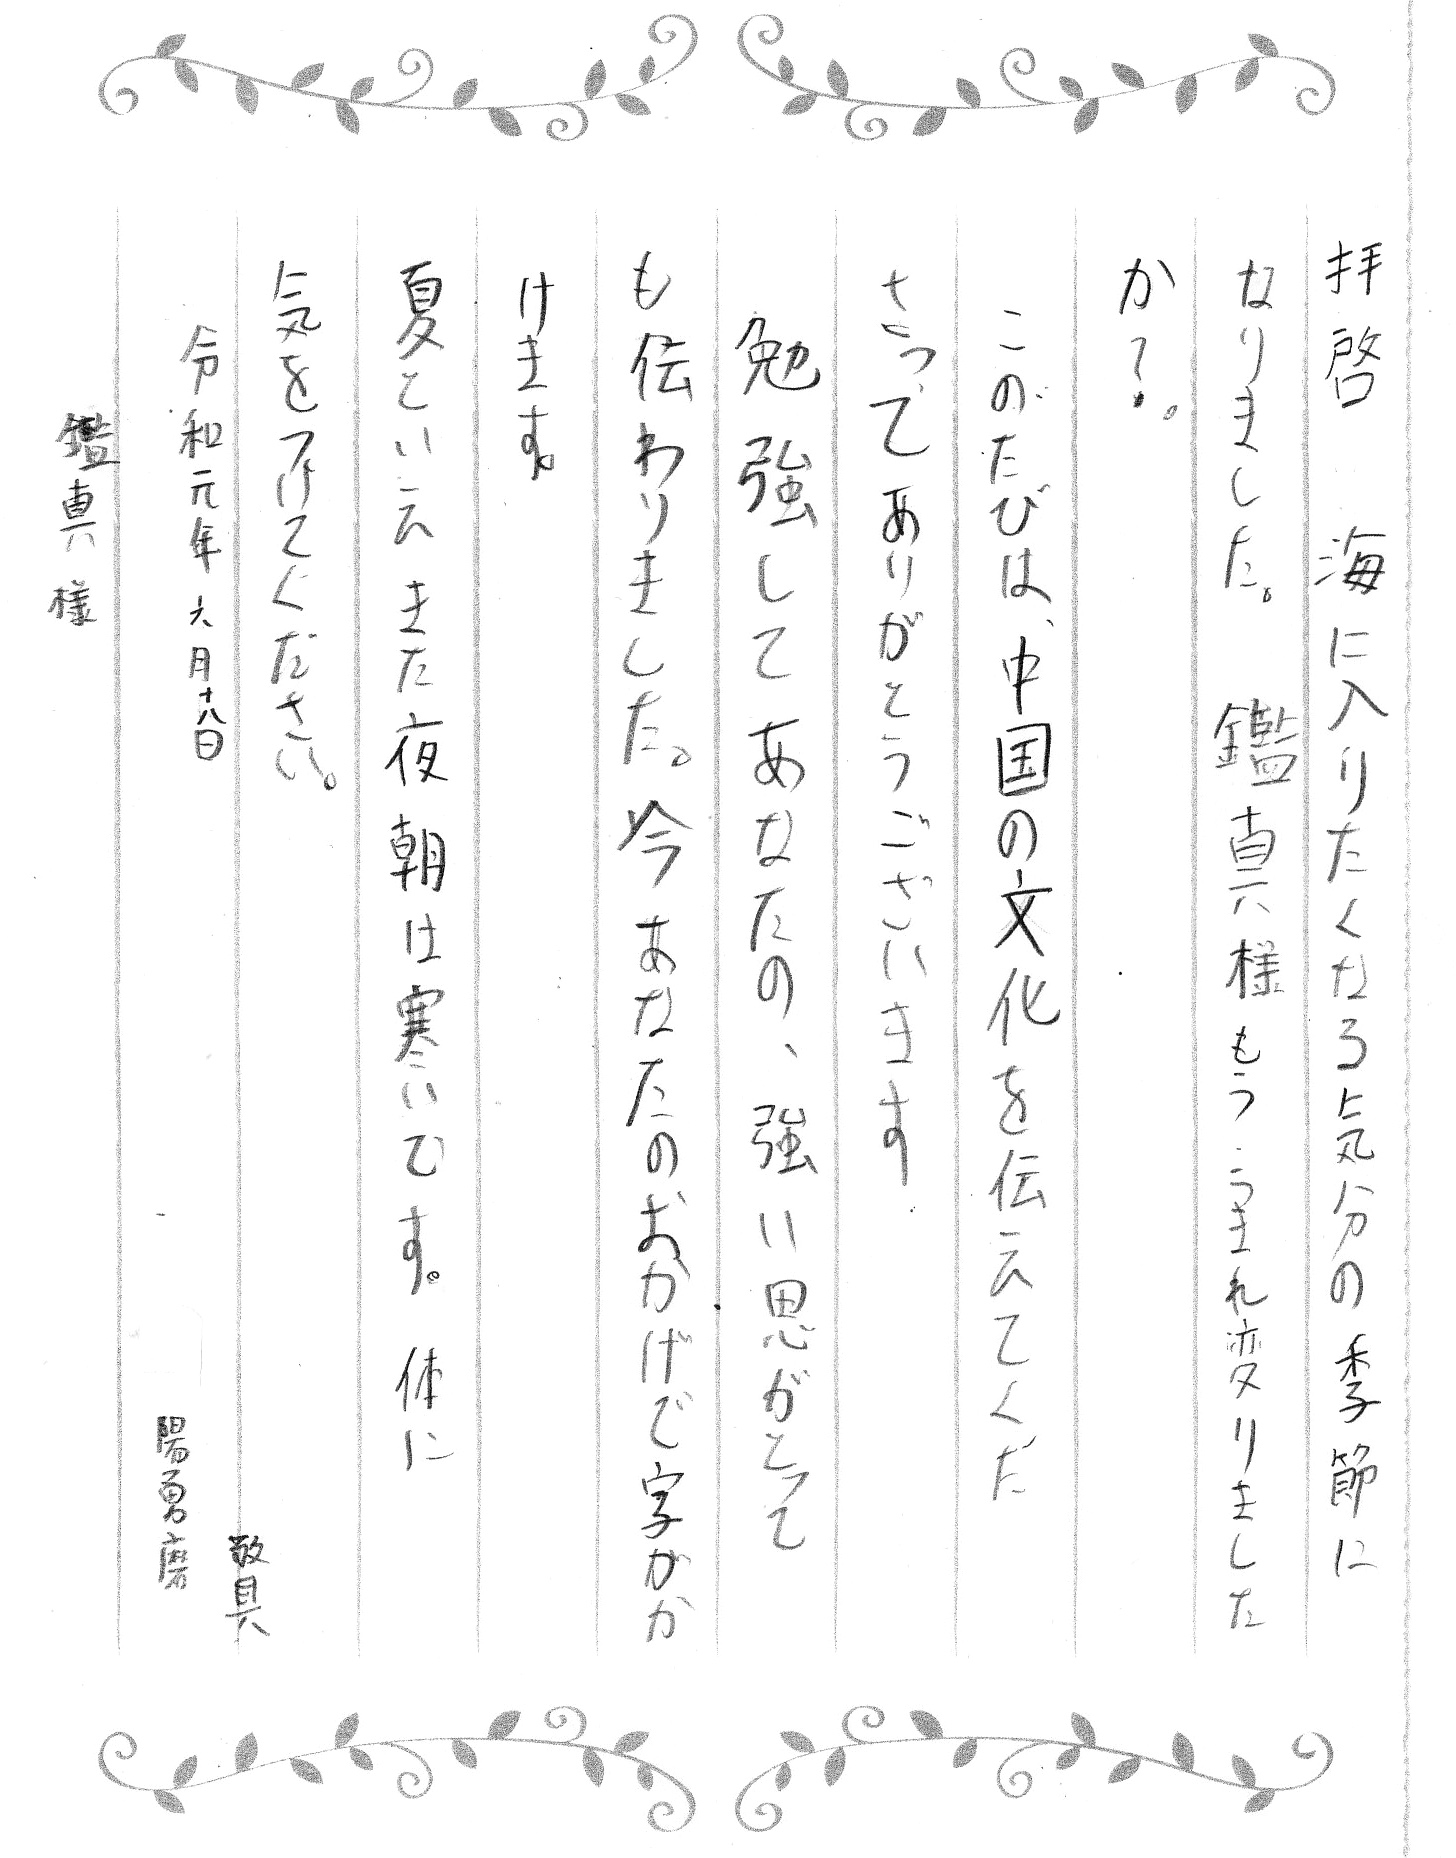 拝啓　海に入りたくなる気分の季節に
なりました。　鑑真様もううまれ変りました
か？。
このたびは、中国の文化を伝えてくだ
さってありがとうございます
勉強してあなたの、強い思がとって
も伝わりました。今あなたのおかげで字がか
けます。
夏といえまた夜朝は寒いです。体に
気をつけてください。
敬具
令和元年六月十八日
陽勇磨
鑑真様